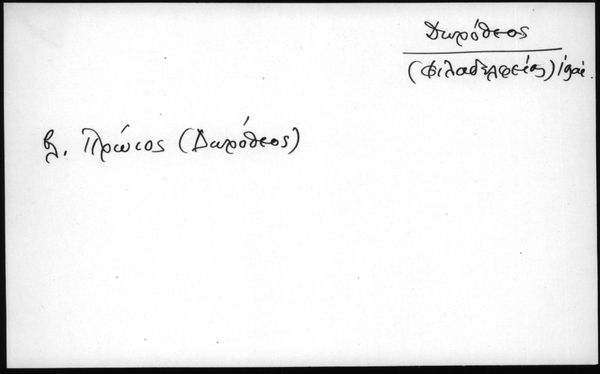 Δωρόθεος
(Φιλαδελφείας)
βλ. Πρώιος (Δωρόθεος)